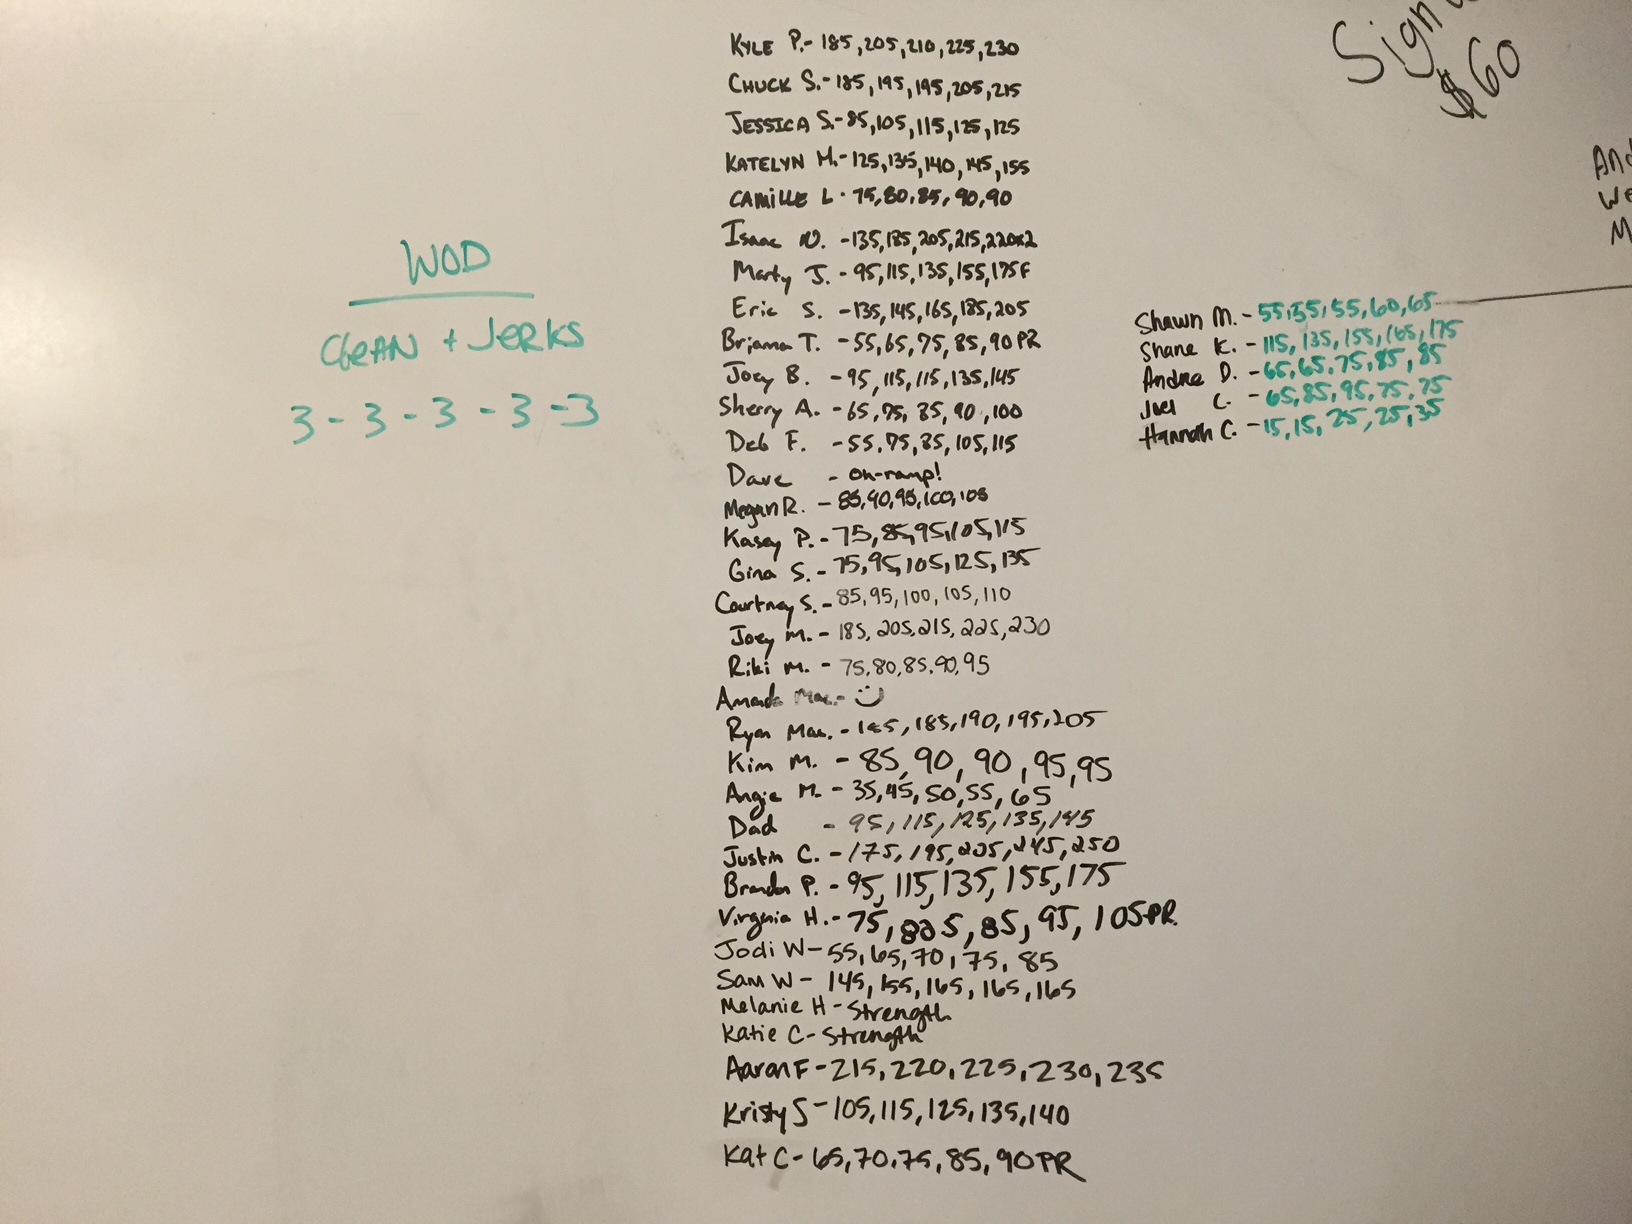 WOD
CLEAN + JERKS
3 - 3 - 3 - 3 - 3
KYLE P.- 185, 205, 210, 225, 230
CHUCK S.- 185, 195, 195, 205, 215
JESSICA S.- 85, 105, 115, 125, 125
KATELYN M.- 125, 135, 140, 145, 155
CAMILLE L - 75, 80, 85, 90, 90
Isaac N. - 135, 185, 205, 215, 220x2
Marty J. - 95, 115, 135, 155, 175F
Eric S. - 135, 145, 165, 185, 205
Briana T. - 55, 65, 75, 85, 90 PR
Joey B. - 95, 115, 115, 135, 145
Sherry A. - 65, 75, 85, 90, 100
Deb F. - 55, 75, 85, 105, 115
Dave - On-ramp!
Megan R. - 85, 90, 95, 100, 105
Kasey P. - 75, 85, 95, 105, 115
Gina S. - 75, 95, 105, 125, 135
Courtney S. - 85, 95, 100, 105, 110
Joey M. - 185, 205, 215, 225, 230
Riki M. - 75, 80, 85, 90, 95
Amanda Mac. -
Ryan Mac. - 185, 190, 195, 205
Kim M. - 85, 90, 90, 95, 95
Angie M. - 35, 45, 50, 55, 65
Dad - 95, 115, 125, 135, 145
Justin C. - 175, 195, 205, 245, 250
Brandon P. - 95, 115, 135, 155, 175
Virginia H. - 75, 85, 95, 105 PR
Jodi W - 55, 65, 70, 75, 85
Sam W - 145, 155, 165, 165, 165
Melanie H - Strength
Katie C - Strength
Aaron F - 215, 220, 225, 230, 235
Kristy S - 105, 115, 125, 135, 140
Kat C - 65, 70, 75, 85, 90 PR
Shawn M. - 55, 55, 55, 60, 65
Shane K. - 115, 135, 155, 165, 175
Andrea D. - 65, 65, 75, 85, 85
Joel C. - 65, 85, 95, 75, 75
Hannah C. - 15, 15, 25, 25, 35
Sign
$60